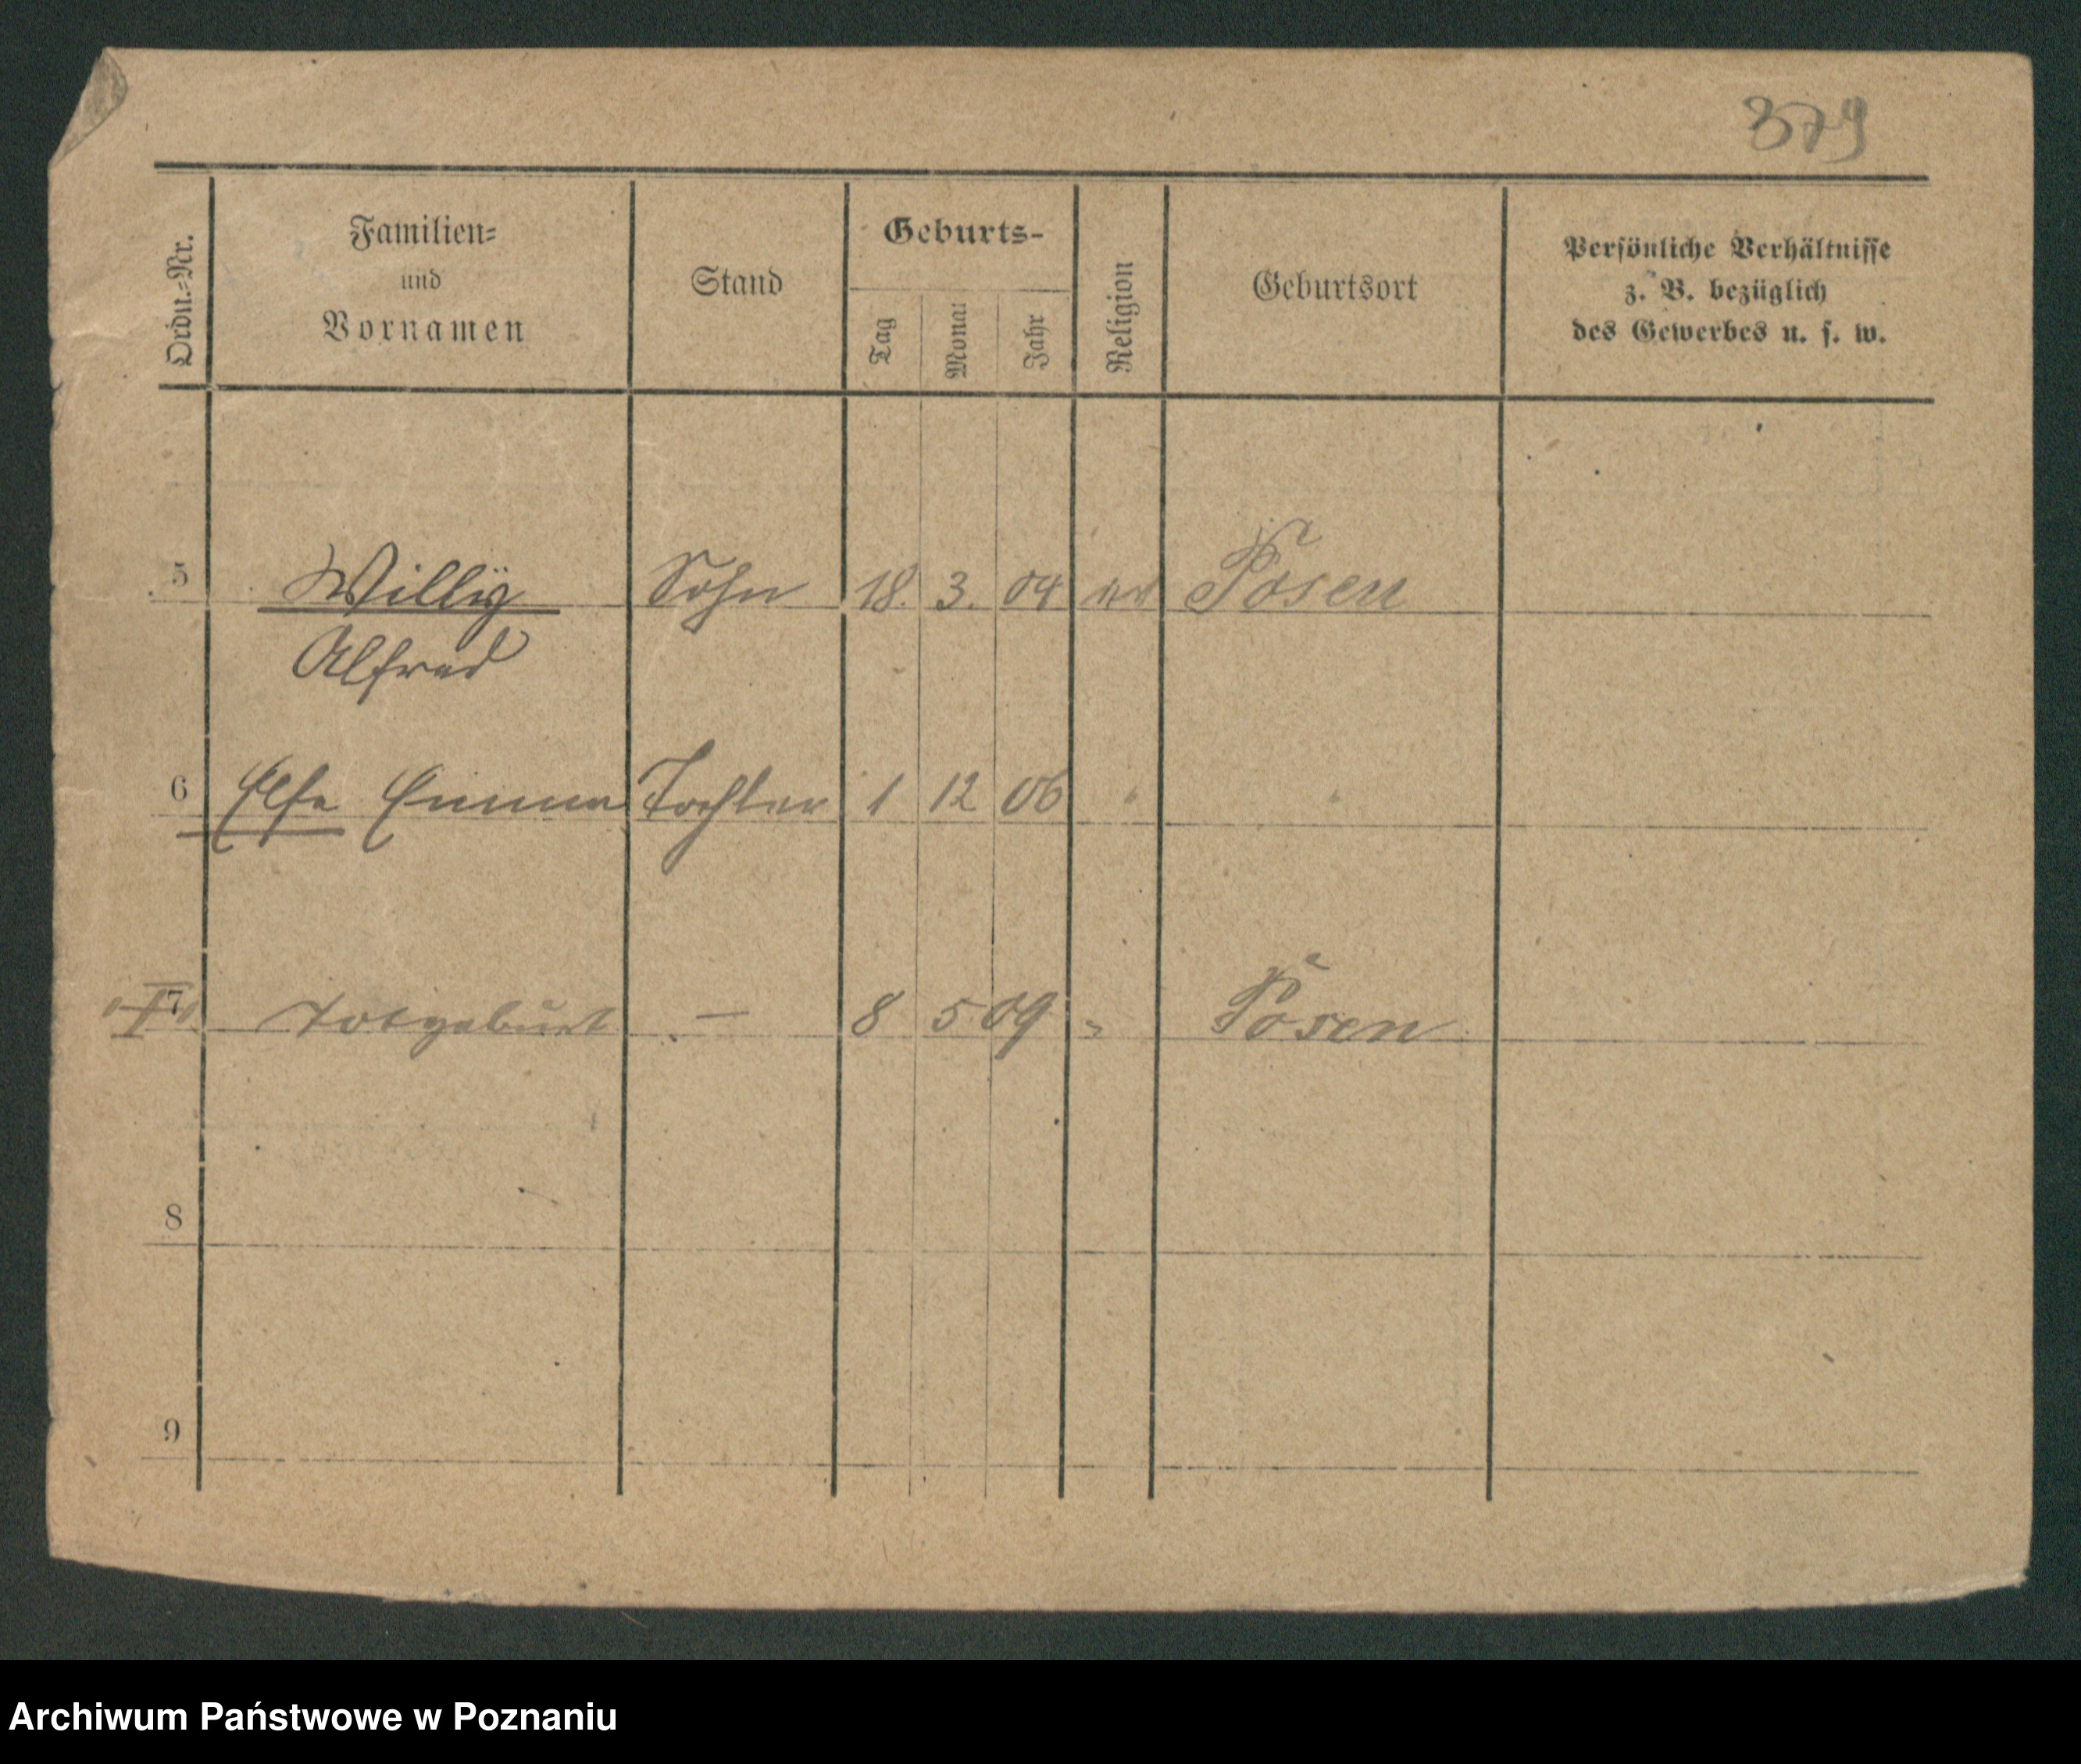 379
Ordn.-Nr.
Familien-
und
Vornamen
Stand
Geburts-
Tag
Monat
Jahr
Religion
Geburtsort
Persönliche Verhältnisse
z. B. bezüglich
des Gewerbes u. s. w.
5 Willÿ Sohn 18. 3. 04 ev Posen
Alfred
6 Else Emma Tochter 1 12 06 " "
7 Totgeburt — 8 5 09 " Posen
8
9
Archiwum Państwowe w Poznaniu